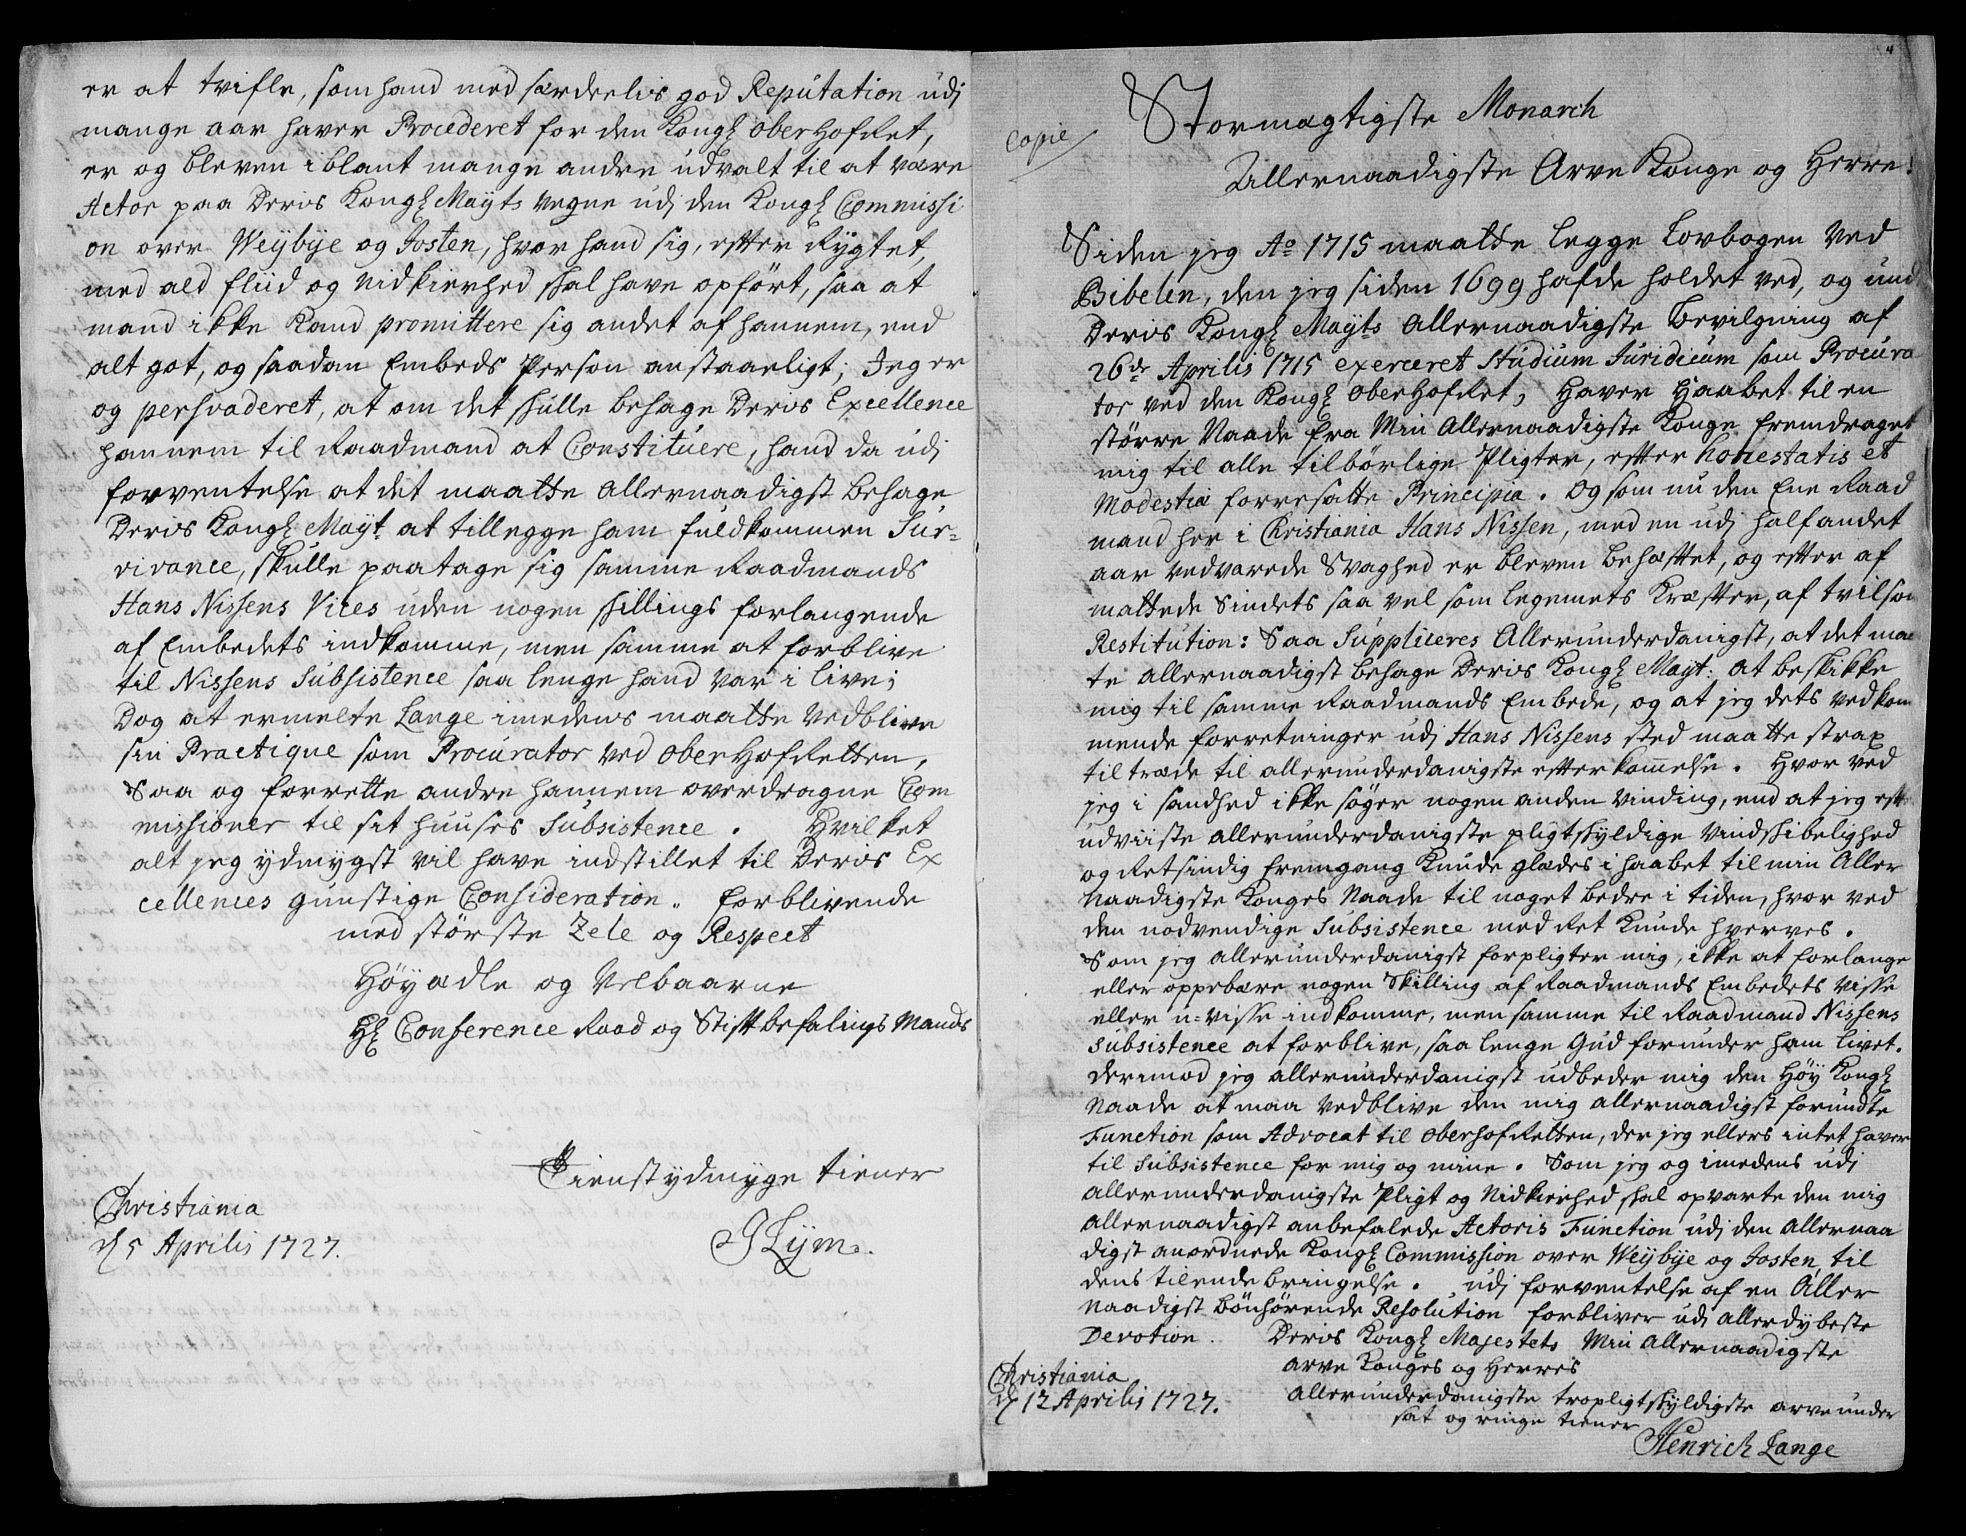 er at tvifle, som hand med særdeelis god Reputation udj
mange aar haver Procederet for den Kongl oberHofRet,
er og bleven iblant mange andre udvalt til at være
Actor paa Deris Kongl Mayts vegne udj den Kongl Commissi
on over Weÿbÿe og Josten, hvor hand sig, efter Rygtet,
med ald fliid og nidkierhed skal have opført, saa at
mand ikke Kand promittere sig andet af hannem, end
alt got, og saadan Embeds Person anstaaeligt; Jeg er
og persvaderet, at om det skulle behage Deris Excellence
hannem til Raadmand at Constituere, hand da udj
forventelse at det maatte allernaadigst behage
Deris Kongl Mayt at tillegge ham fuldkommen Sur-
vivance, skulle paatage sig samme Raadmands
Hans Nissens Vices uden nogen skillings forlangende
af Embedets indkomme, men samme at forblive
til Nissens Subsistence saa lenge hand var i live;
Dog at ermelte Lange imedens maatte vedblive
sin Practique som Procurator ved oberHofRetten,
Saa og forrette andre hannem overdragne Com
missioner til sit huuses Subsistence. Hvilket
alt jeg ydmygst vil have indstillet til Deris Ex
cellences gunstige Consideration. forblivende
med største Zele og Respect
Høyædle og Velbaarne
Hl Conference Raad og Stiftbefalings Mands
Tienstydmyge tiener
Christiania
d 5 Aprilis 1727.
4
Copie
Stormægtigste Monarch
Allernaadigste Arve Konge og Herre!
Siden jeg Ao 1715 maatte legge Lovbogen ved
Bibelen, den jeg siden 1699 hafde holdet ved, og und
Deris Kongl Mayts allernaadigste Bevilgning af
26de Aprilis 1715 exerceret Studium Juridicum som Procura
tor ved den Kongl oberHofRet, Haver Haabet til en
større Naade fra Min Allernaadigste Konge fremdraget
mig til alle tilbørlige Pligter, efter honestatis et
Modestiæ forresatte Principia. Og som nu den Ene Raad
mand her i Christiania Hans Nissen, med en udj halfandet
aar vedvarede Svaghed er bleven behæftet, og efter af
mattede Sindets saa vel som legemets Kræfter, af tvilsom
Restitution: Saa Suppliceres Allerunderdanigst, at det maa
te allernaadigst behage Deris Kongl Mayt: at beskikke
mig til samme Raadmands Embede, og at jeg dets vedkom
mende forretninger udj Hans Nissens sted maatte strax
tiltræde til allerunderdanigste efterkommelse. Hvor ved
jeg i sandhed ikke søger nogen anden vinding, end at jeg efter
udviiste allerunderdanigste pligtskyldige vindskibelighed
og Retsindig fremgang kunde glædes i haabet til min Aller
Naadigste Konges Naade til noget bedre i tiden, hvor ved
den nødvendige Subsistence med Ret kunde hverves.
Som jeg allerunderdanigst forpligter mig, ikke at forlange
eller oppebære nogen Skilling af Raadmands Embedets visse
eller u-visse indkomme, men samme til Raadmand Nissens
Subsistence at forblive, saa lenge Gud forunder ham livet.
derimod jeg allerunderdanigst udbeder mig den Høy Kongl
Naade at maa vedblive den mig allernaadigst forundte
Function som Advocat til oberhofRetten, der jeg ellers intet haver
til Subsistence for mig og mine. Som jeg og imedens udj
allerunderdanigste Pligt og Nidkierhed skal opvarte den mig
allernaadigst anbefalede Actoris Function udj den allernaa
digst anordnede Kongl Commission over Weÿbÿe og Josten, til
dens tilendebringelse. udj forventelse af en Aller
Naadigst bønhørende Resolution forbliver udj allerdybeste
Devotion. Deris Kongl Majestets Min Allernaadigste
Arve Konges og Herres
Christiania
d 12 Aprilis 1727.
allerunderdanigste tropligtskyldigste arveunder
sat og ringe tiener
Henrich Lange